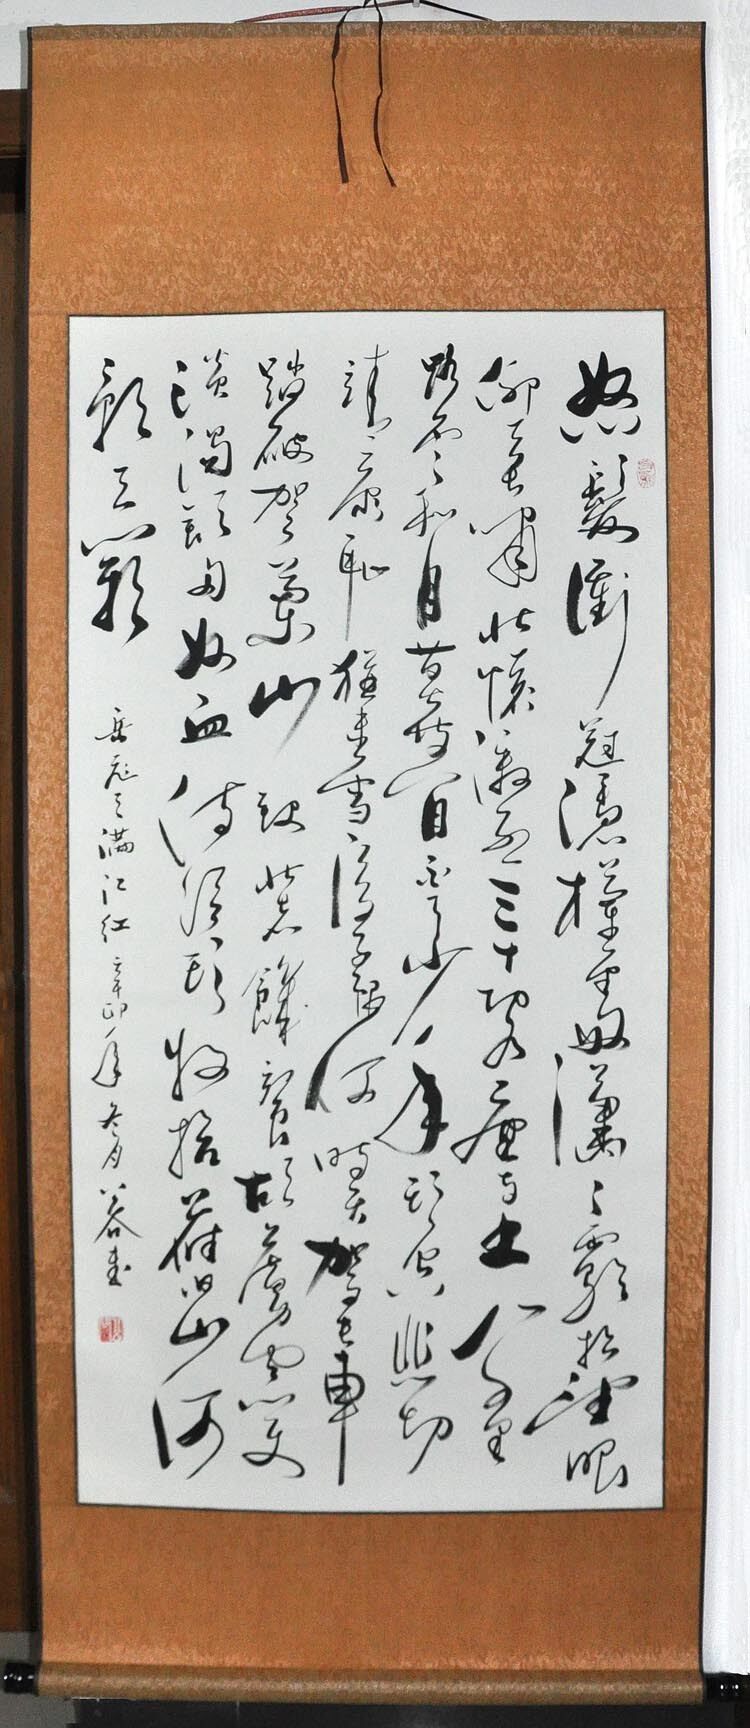 怒髮衝冠憑欄處瀟々雨歇抬望眼
仰天長嘯壯懷激烈三十功名塵與土八千里
路雲和月莫等閒白了少年頭空悲切
靖康恥猶未雪臣子恨何時滅駕長車
踏破賀蘭山缺壯志饑餐胡虜肉笑
談渴飲匈奴血待從頭收拾舊山河
朝天闕
岳飛之滿江紅 辛卯年冬月 書